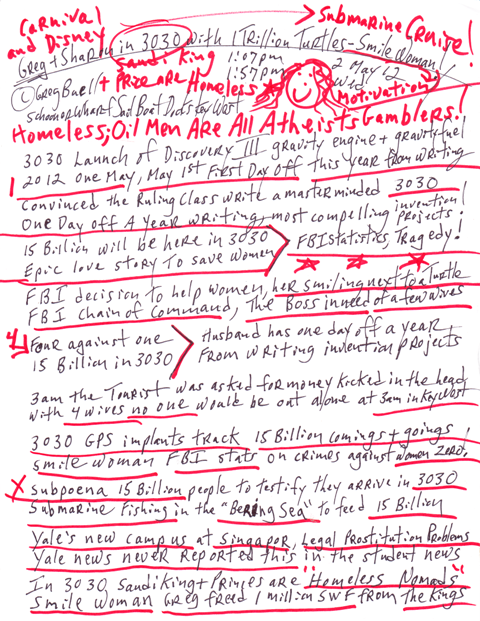 Carnival and Disney
Submarine Cruise!
Greg + Sharon in 3030 with 1 Trillion Turtles - Smile Woman!
Saudi King
1:07pm
2 May 12
© Greg Buell + Prize are Homeless
1:57pm
Wid
Motivation
Schooner Wharf Sail Boat Docks Key West
Homeless; Oil Men Are All Atheists Gamblers!
3030 Launch of Discovery III gravity engine + gravity fuel
2012 one May, May 1st First Day Off This year from writing
Convinced the Ruling Class write a masterminded 3030
One Day off A year writing, most compelling invention projects!
15 Billion will be here in 3030
FBI statistics, Tragedy!
Epic love story To save women
FBI decision to help women, her smiling next to a Turtle
FBI Chain of Command, The Boss in need of a few wives
4 Four against one
Husband has one day off a year
15 Billion in 3030
From writing invention projects
3am the Tourist was asked for money kicked in the head
with 4 wives no one would be out alone at 3am in Key West
3030 GPS implants track 15 Billion comings + goings!
smile woman FBI stats on crimes against women zero!
X Subpoena 15 Billion people to testify they arrive in 3030
Submarine Fishing in the "Bering Sea" to feed 15 Billion
Yale's new campus at Singapor, Legal Prostitution Problems
Yale news never reported this in the student news
In 3030 Saudi King + Princes are "Homeless Nomads"
Smile Woman Greg freed 1 million SWF from the Kings